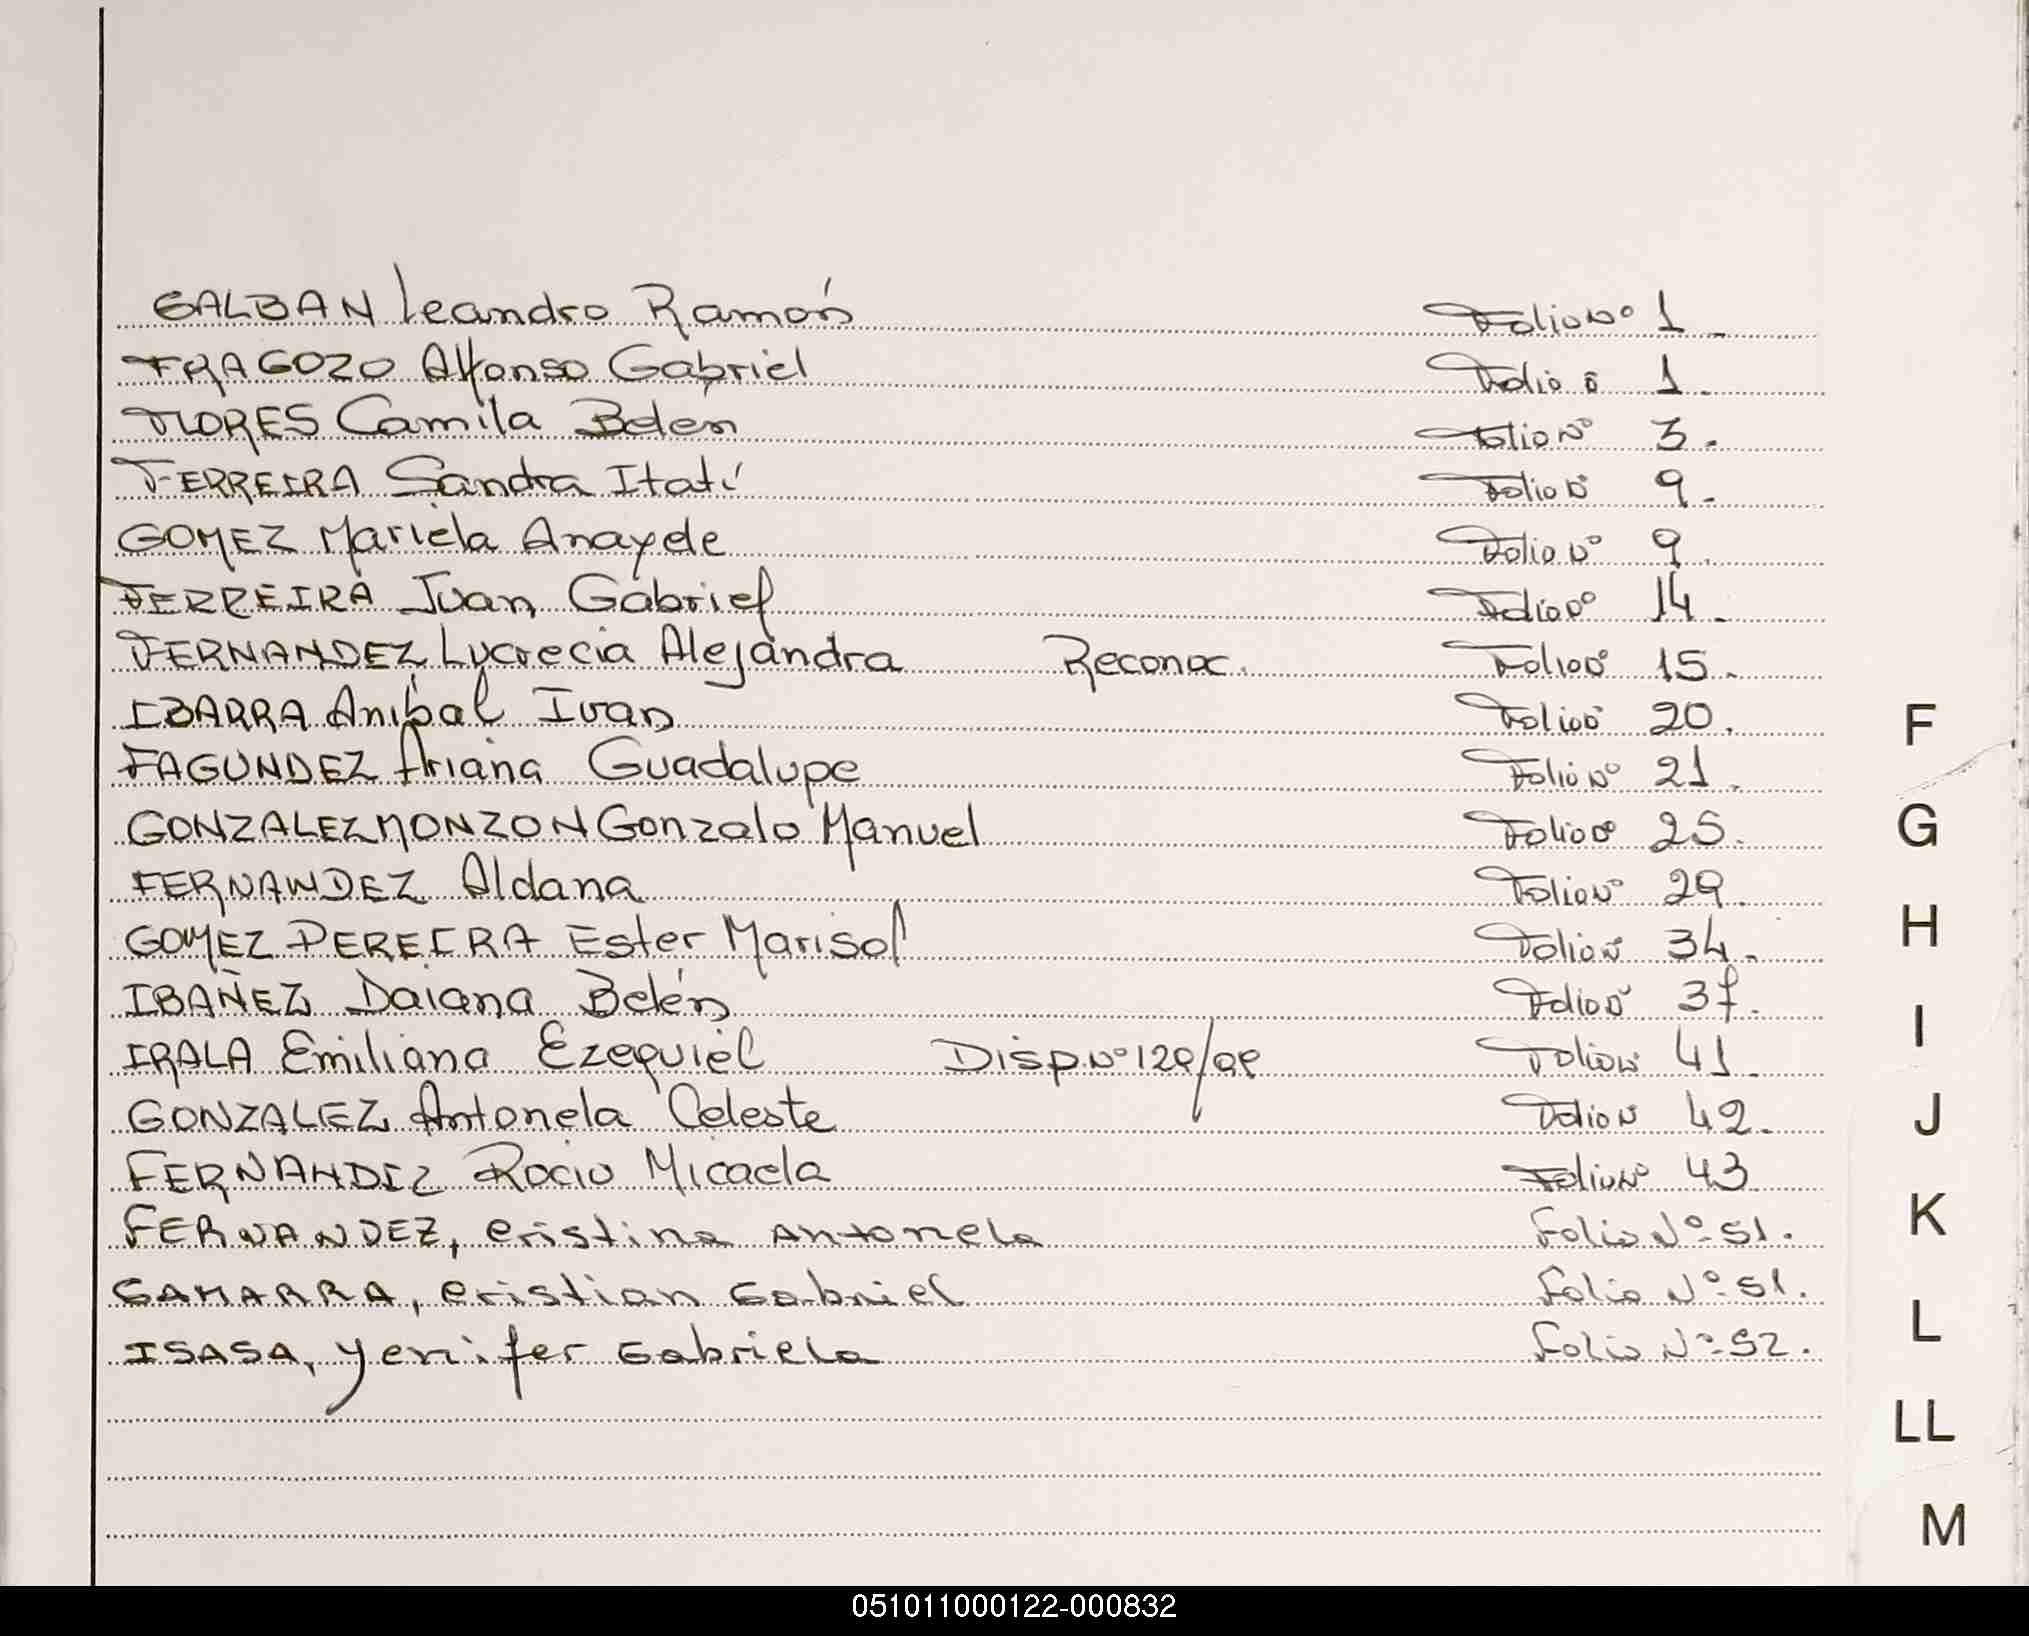 GALBAN Leandro Ramón Folio Nº 1
FRAGOZO Alfonso Gabriel Folio º 1.
FLORES Camila Belen Folio Nº 3.
FERREIRA Sandra Itatí Folio Nº 9.
GOMEZ Mariela Anayde Folio Nº 9.
FERREIRA Juan Gabriel Folio Nº 14.
FERNANDEZ Lucrecia Alejandra Reconoc. Folio Nº 15.
IBARRA Anibal Ivan Folio Nº 20.
FAGUNDEZ Ariana Guadalupe Folio Nº 21.
GONZALEZ MONZON Gonzalo Manuel Folio Nº 25.
FERNANDEZ Aldana Folio Nº 29.
GOMEZ PEREIRA Ester Marisol Folio Nº 34.
IBAÑEZ Daiana Belén Folio Nº 37.
IRALA Emiliano Ezequiel Disp. Nº Folio Nº 41.
GONZALEZ Antonela Celeste Folio N 42.
FERNANDEZ Rocio Micaela Folio Nº 43
FERNANDEZ, Cristina Antonela Folio Nº 51.
GAMARRA, Cristian Gabriel Folio Nº 51.
ISASA, Yenifer Gabriela Folio Nº 52.
F
G
H
I
J
K
L
LL
M
051011000122-000832